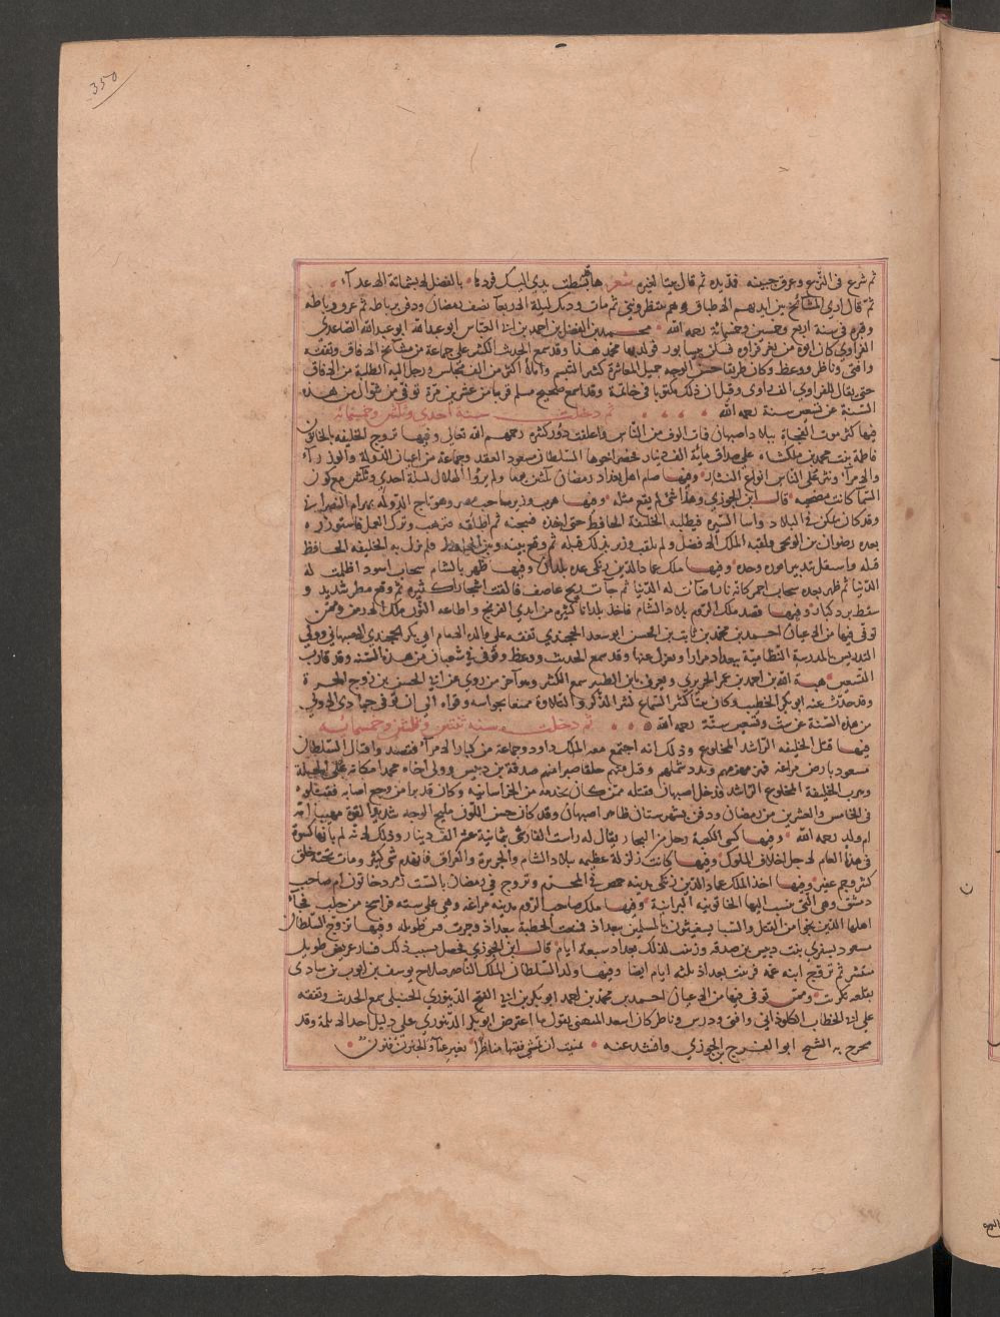 350
ثم شرع في النزع وعرق جبينه فمد يده ثم قال بيتا لغيره شعر ها قد بسطت يدي اليك فردها بالفضل لا بشماتة الاعداء
ثم قال اري المشايخ بين ايديهم الاطباق وهم ينتظرونني ثم مات وذلك ليلة الاربعا نصف رمضان ودفن برباطه ثم غرق رباطه
وقبره في سنة اربع وخمسين وخمسمائة رحمه الله محمد بن الفضل بن احمد بن ابي العباس ابو عبد الله الصاعدي
الفراوي كان ابوه من ثغر فراوه فسكن نيسابور فولد بها محمد هذا وقد سمع الحديث الكثير علي جماعة من مشايخ الافاق وتفقه
وافتي وناظر ووعظ وكان ظريفا حسن الوجه جميل المعاشرة كثير التبسم واملي اكثر من الف مجلس ورحل اليه الطلبة من الافاق
حتي يقال للفراوي الف راوي وقيل ان ذلك مكتوبا في خاتمه وقد اسمع صحيح مسلم قريبا من عشرين مرة توفي من شوال من هذه
السنة عن تسعين سنة رحمه الله ثم دخلت سنة احدي وثلثين وخمسمائة
فيها كثر موت الفجأة ببلاد اصبهان فمات الوف من الناس واغلقت دور كثيره رحمهم الله تعالي وفيها تزوج الخليفه بالخاتون
فاطمة بنت محمد بن ملكشاه علي صداق ماية الف دينار فحضر اخوها السلطان مسعود العقد وجماعة من اعيان الدولة والوزراء
والامراء ونثر علي الناس انواع النثار وفيها صام اهل بغداد رمضان ثلثين يوما ولم يروا الهلال ليلة احدي وثلثين مع كون
السما كانت مصحيه قال ابن الجوزي وهذا شي لم يقع مثله وفيها هرب وزير صاحب مصر وهو تاج الدوله بهرام النصراني
وقد كان تمكن في البلاد واسا السيره فتطلبه الخليفة الحافظ حتي اخذه فسجنه ثم اطلقه فترهب وترك العمل فاستوزر
بعده رضوان بن الولحي ولقبه الملك الافضل ولم يلقب وزير بذلك قبله ثم وقع بينه وبين الحافظ فلم يزل به الخليفه الحافظ
قتله واستقل بتدبير اموره وحده وفيها ملك عماد الدين زنكي عده بلدان وفيها ظهر بالشام سحاب اسود اظلمت له
الدنيا ثم ظهر بعده سحاب احمر كانه نار اضاءت له الدنيا ثم جات ريح عاصف فالقت اشجارا كثيرة ثم وقع مطر شديد و
سقط برد كبار وفيها قصد ملك الروم بلاد الشام فاخذ بلدانا كثيره من ايدي الفرنج واطاعه اليون ملك الارمن وممن
توفي فيها من الاعيان احمد بن محمد بن ثابت بن الحسن ابو سعد الخجندي تفقه علي والده الامام ابي بكر الخجندي الاصبهاني وولي
التدريس بالمدرسة النظامية ببغداد مرارا ويعزل عنها وقد سمع الحديث ووعظ وتوفي في شعبان من هذه السنه وقد قارب
التسعين هبة الله بن احمد بن عمر الحريري ويعرف بابن الطبر سمع الكثير وهو آخر من روي عن ابي الحسن بن زوج الحرة
وقد حدث عنه ابو بكر الخطيب وكان ثبتا كثير السماع كثير الذكر والتلاوة ممتعا بحواسه وقواه الي ان توفي في جمادي الاولي
من هذه السنة عن ست وتسعين سنة رحمه الله ثم دخلت سنه ثنتين وثلثين وخمسمائه
فيها قتل الخليفه الراشد المخلوع وذلك انه اجتمع معه الملك داود وجماعة من كبار الامراء فقصدوا قتال السلطان
مسعود بارض مراغه فهزمهم وبدد شملهم وقتل منهم خلقا صبرا منهم صدقة بن دبيس وولي اخاه محمدا مكانه علي الحلة
وهرب الخليفة المخلوع الراشد فدخل اصبهان فقتله ممن كان يخدمه من الخراسانيه وكان قد برأ من وجع اصابه فقتلوه
في الخامس والعشرين من رمضان ودفن بشهرستان ظاهر اصبهان وقد كان حسن اللون مليح الوجه شديد القوة مهيبا امه
ام ولد رحمه الله وفيها كسي الكعبة رجل من التجار يقال له راست الفارسي بثمانية عشر الف دينار وذلك لانه لم ياتها كسوة
في هذا العام لاجل اختلاف الملوك وفيها كانت زلزلة عظيمه ببلاد الشام والجزيرة والعراق فانهدم شي كثير ومات تحته خلق
كثير وجم غفير وفيها اخذ الملك عماد الدين زنكي مدينه حمص في المحرم وتزوج في رمضان بالست زمرد خاتون ام صاحب
دمشق وهي التي ينسب اليها الخاتونيه البرانية وفيها ملك صاحب الروم مدينه مراغه وهي علي سته فراسخ من حلب فجاء
اهلها الذين نجوا من القتل والسبا يستغيثون بالمسلمين ببغداد فمنعت الخطبة ببغداد وجرت فتن طويله وفيها تزوج السلطان
مسعود بسفري بنت دبيس بن صدقه وزينت لذلك بغداد سبعة ايام قال ابن الجوزي فحصل بسبب ذلك فساد عريض طويل
منتشر ثم تزوج ابنه عمه فزينت بغداد ثلثه ايام ايضا وفيها ولد السلطان الملك الناصر صلاح يوسف بن ايوب بن شادي
بقلعه تكريت وممن توفي فيها من الاعيان احمد بن محمد بن احمد ابو بكر بن ابي الفتح الدينوري الحنبلي سمع الحديث وتفقه
علي ابي الخطاب الكلوذاني وافتي ودرس وناظر كان اسعد الميهني يقول ما اعترض ابو بكر الدينوري علي دليل احد الا ثلمه وقد
تخرج به الشيخ ابو الفرج بن الجوزي وانشد عنه تمنيت ان تمسي فقيها مناظرا بغير عناء والجنون فنون